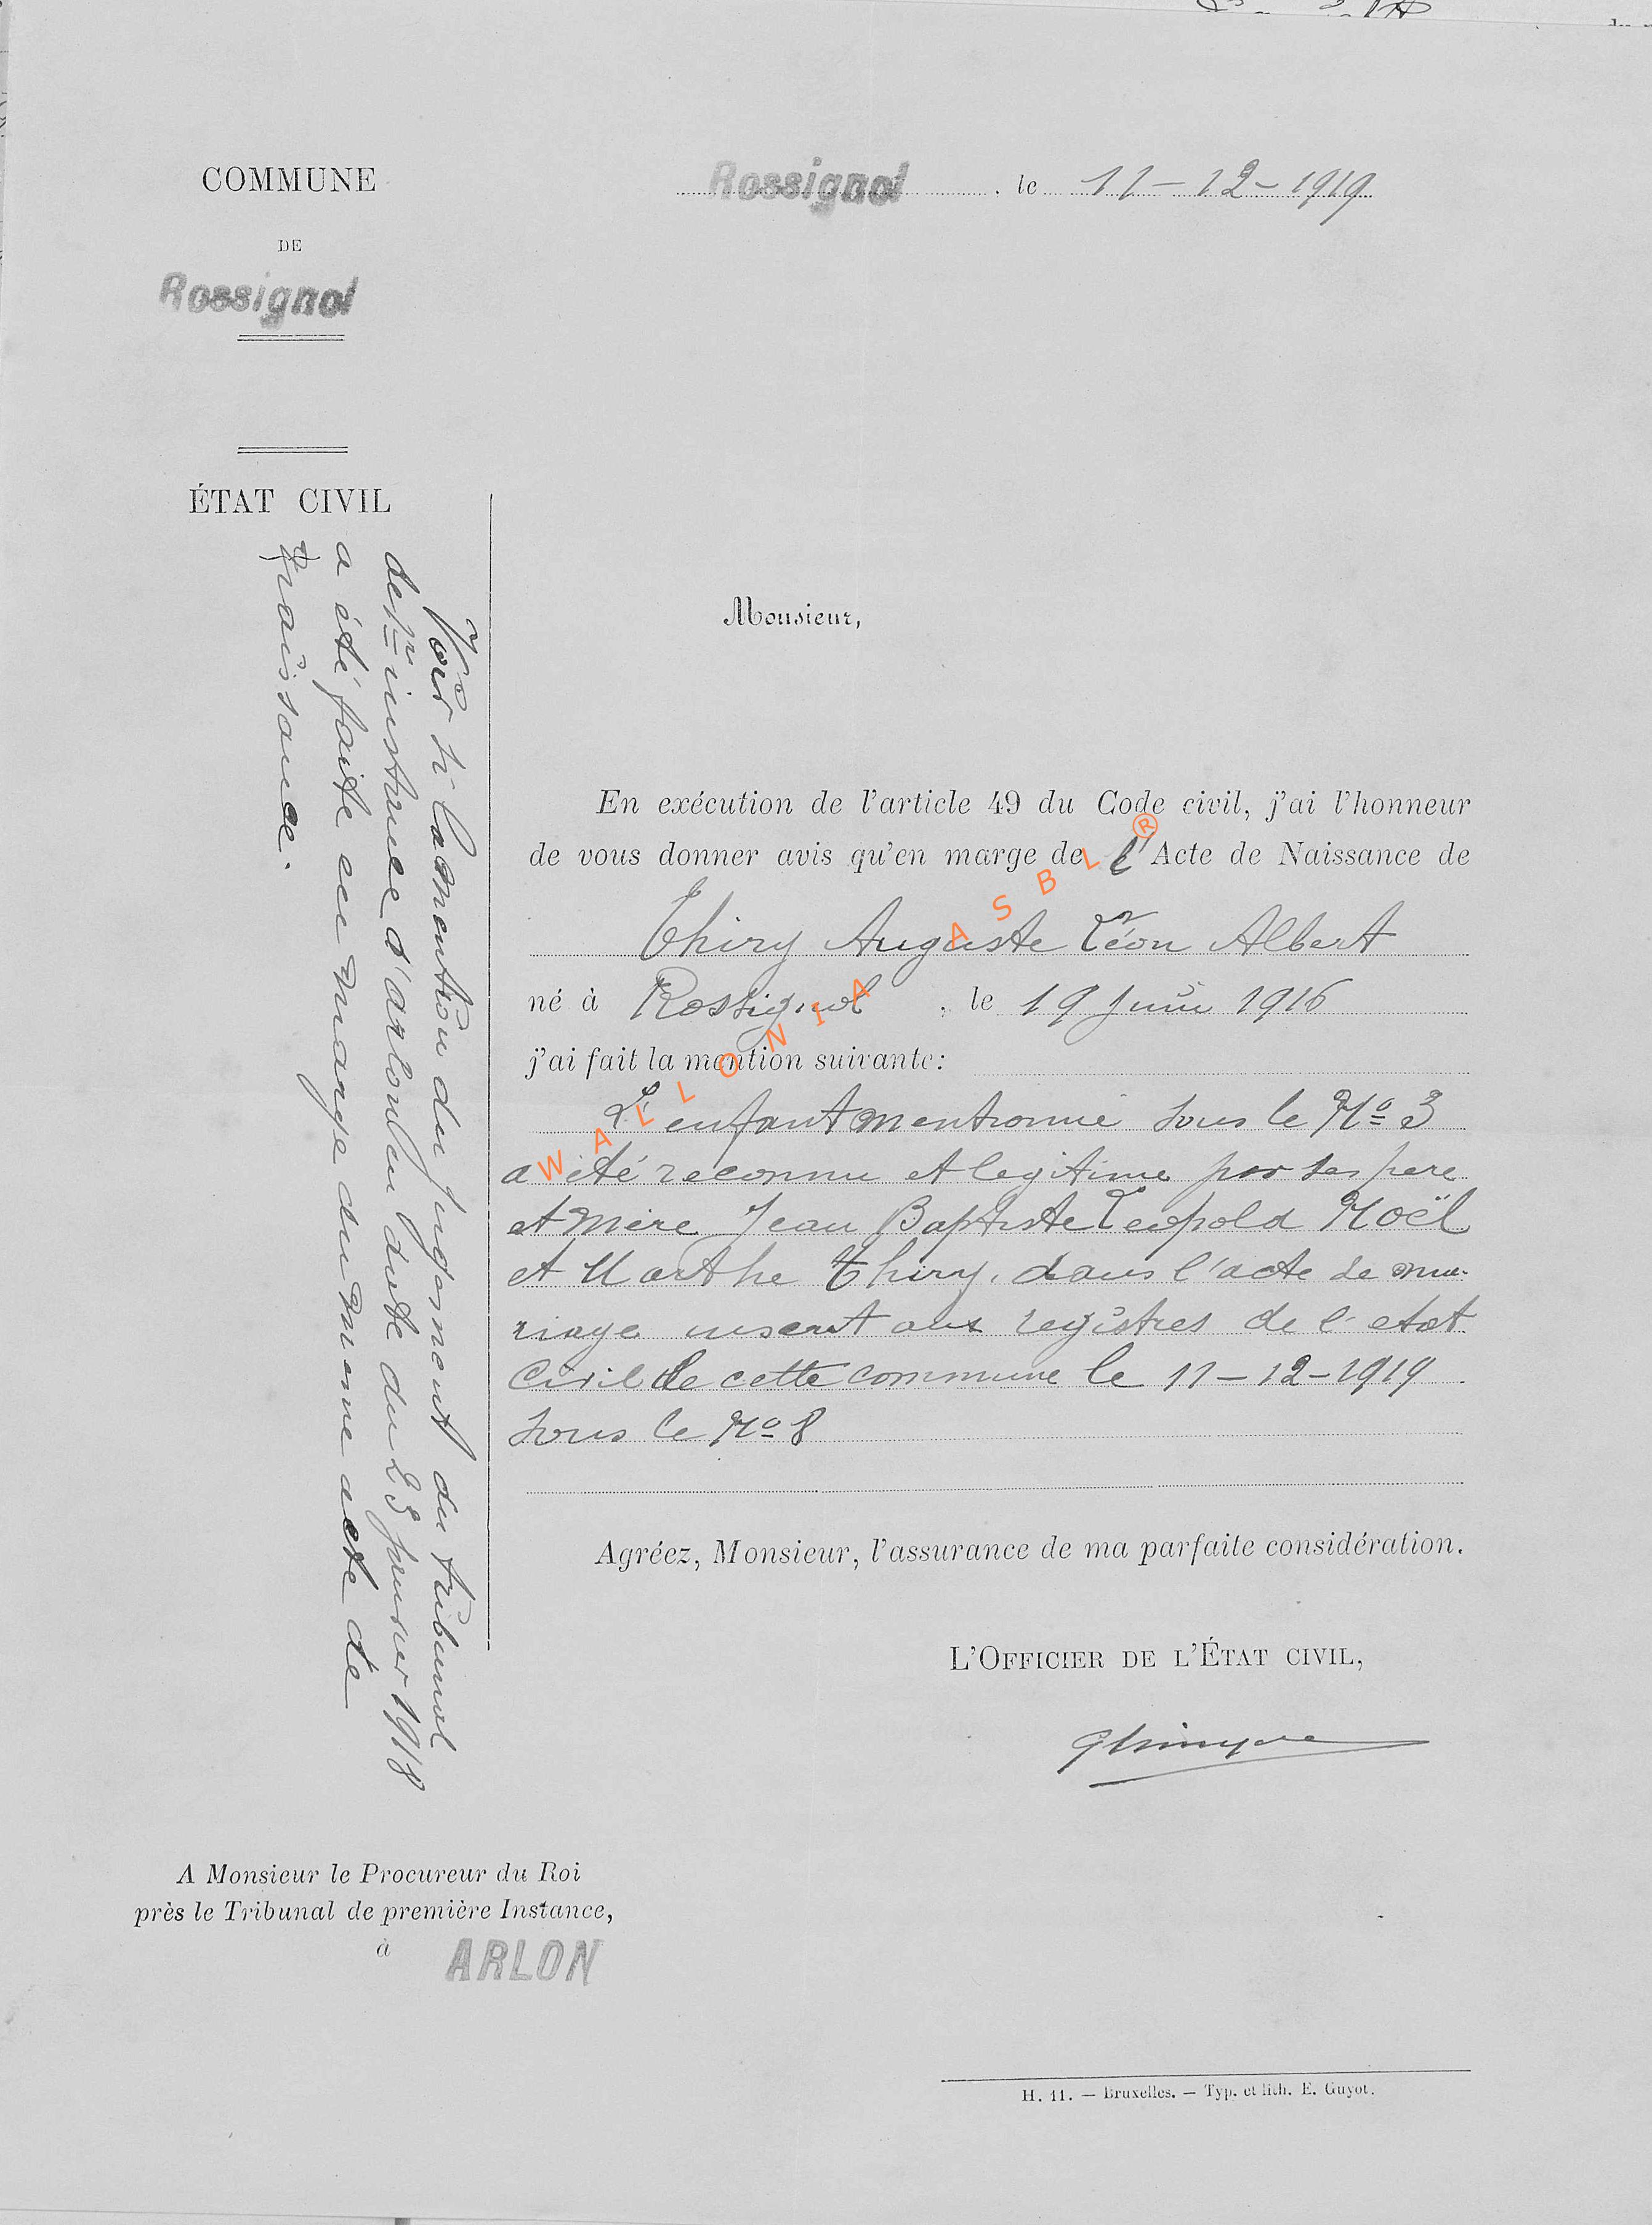 COMMUNE
DE
Rossignol
Rossignol, le 11-12-1919
ÉTAT CIVIL
Voir si la mention du jugement du tribunal
de 1re instance d'arlon en date du 23 janvier 1918
a été faite en marge du meme acte de
naissance.
Monsieur,
En exécution de l'article 49 du Code civil, j'ai l'honneur
de vous donner avis qu'en marge de l'Acte de Naissance de
Thiry Auguste Léon Albert
né à Rossignol, le 19 Juin 1916
j'ai fait la mention suivante:
L'enfant mentionné sous le No 3
a été reconnu et legitime par ses pere
et mère Jean Baptiste Leopold Noël
et Marthe Thiry, dans l'acte de ma-
riage inscrit aux registres de l'etat
Civil de cette commune le 11-12-1919
sous le No 8
Agréez, Monsieur, l'assurance de ma parfaite considération.
L'OFFICIER DE L'ÉTAT CIVIL,
A Monsieur le Procureur du Roi
près le Tribunal de première Instance,
à ARLON
H. 11. — Bruxelles. — Typ. et lith. E. Guyot.
WALLONIA ASBL ®